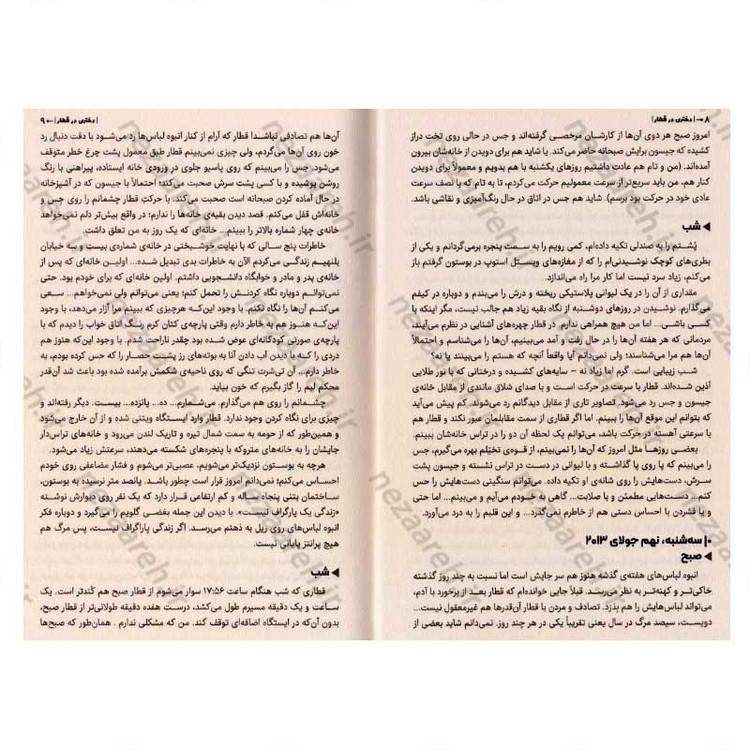 ۸ | دختری در قطار
امروز صبح هر دوی آن‌ها از کارشان مرخصی گرفته‌اند و جس در حالی روی تخت دراز
کشیده که جیسون برایش صبحانه حاضر می‌کند. یا شاید هم برای دویدن از خانه‌شان بیرون
آمده‌اند. (من و تام هم عادت داشتیم روزهای یکشنبه با هم بدویم و معمولاً برای دویدن
کنار هم، من باید سریع‌تر از سرعت معمولیم حرکت می‌کردم، تا به تام که با نصف سرعت
عادی خود در حرکت بود برسم). شاید هم جس در اتاق در حال رنگ‌آمیزی و نقاشی باشد.
شب
پُشتم را به صندلی تکیه داده‌ام، کمی رویم را به سمت پنجره برمی‌گردانم و یکی از
بطری‌های کوچک نوشیدنی‌ام را که از مغازه‌های ویستل استوپ در بوستون گرفتم باز
می‌کنم، زیاد سرد نیست اما کار مرا راه می‌اندازد.
مقداری از آن را در یک لیوانی پلاستیکی ریخته و درش را می‌بندم و دوباره در کیفم
می‌گذارم. نوشیدن در روزهای دوشنبه از نگاه بقیه زیاد هم جالب نیست، مگر اینکه با
کسی باشی... اما من هیچ همراهی ندارم. در قطار چهره‌های آشنایی در نظرم می‌آیند،
مردمانی که هر هفته آن‌ها را در حال رفت و آمد می‌بینم، آن‌ها را می‌شناسم و احتمالاً
آن‌ها هم مرا می‌شناسند؛ ولی نمی‌دانم آیا واقعاً آنچه که هستم را می‌بینند یا نه؟
شب زیبایی است. گرم اما زیاد نه – سایه‌های کشیده و درختانی که با نور طلایی
آذین شده‌اند. قطار با سرعت در حرکت است و با صدای شلاق مانندی از مقابل خانه‌ی
جیسون و جس رد می‌شود. تصاویر تاری از مقابل دیدگانم رد می‌شوند. کم پیش می‌آید
که بتوانم این موقع آن‌ها را ببینم. اما اگر قطاری از سمت مقابلمان عبور نکند و قطار هم
با سرعتی آهسته در حرکت باشد، می‌توانم یک لحظه آن دو را در تراس خانه‌شان ببینم.
بعضی روزها مثل امروز که آن‌ها را نمی‌بینم، از قوه‌ی تخیلم بهره می‌گیرم. جس
را می‌بینم که پا روی پا گذاشته و با لیوانی در دست در تراس نشسته و جیسون پشت
سرش، دست‌هایش را روی شانه‌ی او تکیه داده. می‌توانم سنگینی دست‌هایش را حس
کنم. دست‌هایی مطمئن و با صلابت... گاهی به خودم می‌آیم و می‌بینم... اما حتی
و یا فشردن با احساس دستی هم از خاطرم نمی‌گذرد... و این قلبم را به درد می‌آورد.
سه‌شنبه، نهم جولای ۲۰۱۳
صبح
انبوه لباس‌های هفته‌ی گذشته هنوز هم سر جایش است اما نسبت به چند روز گذشته
خاکی‌تر و کهنه‌تر به نظر می‌رسد. قبلاً جایی خوانده‌ام که قطار بعد از برخورد با آدم،
می‌تواند لباس‌هایش را هم بدَزد. تصادف و مردن با قطار آن‌قدرها هم غیرمعقول نیست...
دویست، سیصد مرگ در سال یعنی تقریباً یکی در هر چند روز. نمی‌دانم شاید بعضی از
| دختری در قطار | ۹
آن‌ها هم تصادفی نباشد! قطار که آرام از کنار انبوه لباس‌ها رد می‌شود با دقت دنبال رد
خون روی آن‌ها می‌گردم، ولی چیزی نمی‌بینم. قطار طبق معمول پشت چرغ خطر متوقف
می‌شود. جس را می‌بینم که روی پاسیو جلوی در ورودی خانه ایستاده، پیراهنی با رنگ
روشن پوشیده و با کسی پشت سرش صحبت می‌کند؛ احتمالاً با جیسون که در آشپزخانه
در حال آماده کردن صبحانه است صحبت می‌کند. با حرکت قطار چشمانم را روی جس و
خانه‌اش قفل می‌کنم. قصد دیدن بقیه‌ی خانه‌ها را ندارم؛ در واقع بیش‌تر دلم نمی‌خواهد
خانه‌ی چهار شماره بالاتر را ببینم... خانه‌ای که یک روز به من تعلق داشت.
خاطرات پنج سالی که با نهایت خوشبختی در خانه‌ی شماره‌ی بیست و سه خیابان
بلنهیم زندگی می‌کردم الآن به خاطرات بدی تبدیل شده... اولین خانه‌ای که پس از
خانه‌ی پدر و مادر و خوابگاه دانشجویی داشتم. اولین خانه‌ای که برای خودم بود. حتی
نمی‌توانم دوباره نگاه کردنش را تحمل کنم؛ یعنی می‌توانم ولی نمی‌خواهم... سعی
می‌کنم آن‌ها را نگاه نکنم. با وجود این‌که هرچیزی که ببینم مرا آزار می‌دهد، با وجود
این‌که هنوز هم به خاطر دارم وقتی پارچه‌ی کتان کرم رنگ اتاق خواب را دیدم که با
پارچه‌ی صورتی کودکانه‌ای عوض شده بود چقدر ناراحت شدم. با وجود این‌که هنوز هم
دردی را که با دیدن آب دادن آنا به بوته‌های رز پشت حصار را که حس کرده بودم، به
خاطر دارم... آن تی‌شرت تنگی که روی ناحیه‌ی شکمش برآمده شده بود باعث شد آن‌قدر
محکم لبم را گاز بگیرم که خون بیاید.
چشمانم را روی هم می‌گذارم. می‌شمارم... ده... پانزده... بیست. دیگر رفته‌اند و
چیزی برای نگاه کردن وجود ندارد. قطار وارد ایستگاه ویتنی شده و از آن خارج می‌شود
و همین‌طور که از حومه به سمت شمال تیره و تاریک لندن می‌رود و خانه‌های تراس‌دار
جایشان را به خانه‌های متروکه با پنجره‌های شکسته می‌دهند، سرعتش زیاد می‌شود.
هرچه به بوستون نزدیک‌تر می‌شویم، عصبی‌تر می‌شوم و فشار مضاعفی روی خودم
احساس می‌کنم؛ نمی‌دانم امروز قرار است چطور باشد. پانصد متر نرسیده به بوستون،
ساختمان بتنی پنجاه‌ساله و کم ارتفاعی قرار دارد که یک نفر روی دیوارش نوشته
«زندگی یک پاراگراف نیست». با دیدن این جمله بغضی گلویم را می‌گیرد و دوباره فکر
انبوه لباس‌های روی ریل به ذهنم می‌رسد. اگر زندگی پاراگراف نیست، پس مرگ هم
هیچ پرانتز پایانی نیست.
شب
قطاری که شب هنگام ساعت ۱۷:۵۶ سوار می‌شوم از قطار صبح هم کُندتر است. یک
ساعت و یک دقیقه مسیرم طول می‌کشد، درست هفده دقیقه طولانی‌تر از قطار صبح،
بدون آن‌که در ایستگاه اضافه‌ای توقف کند. من که مشکلی ندارم . همان‌طور که صبح‌ها
nezaareh.ir